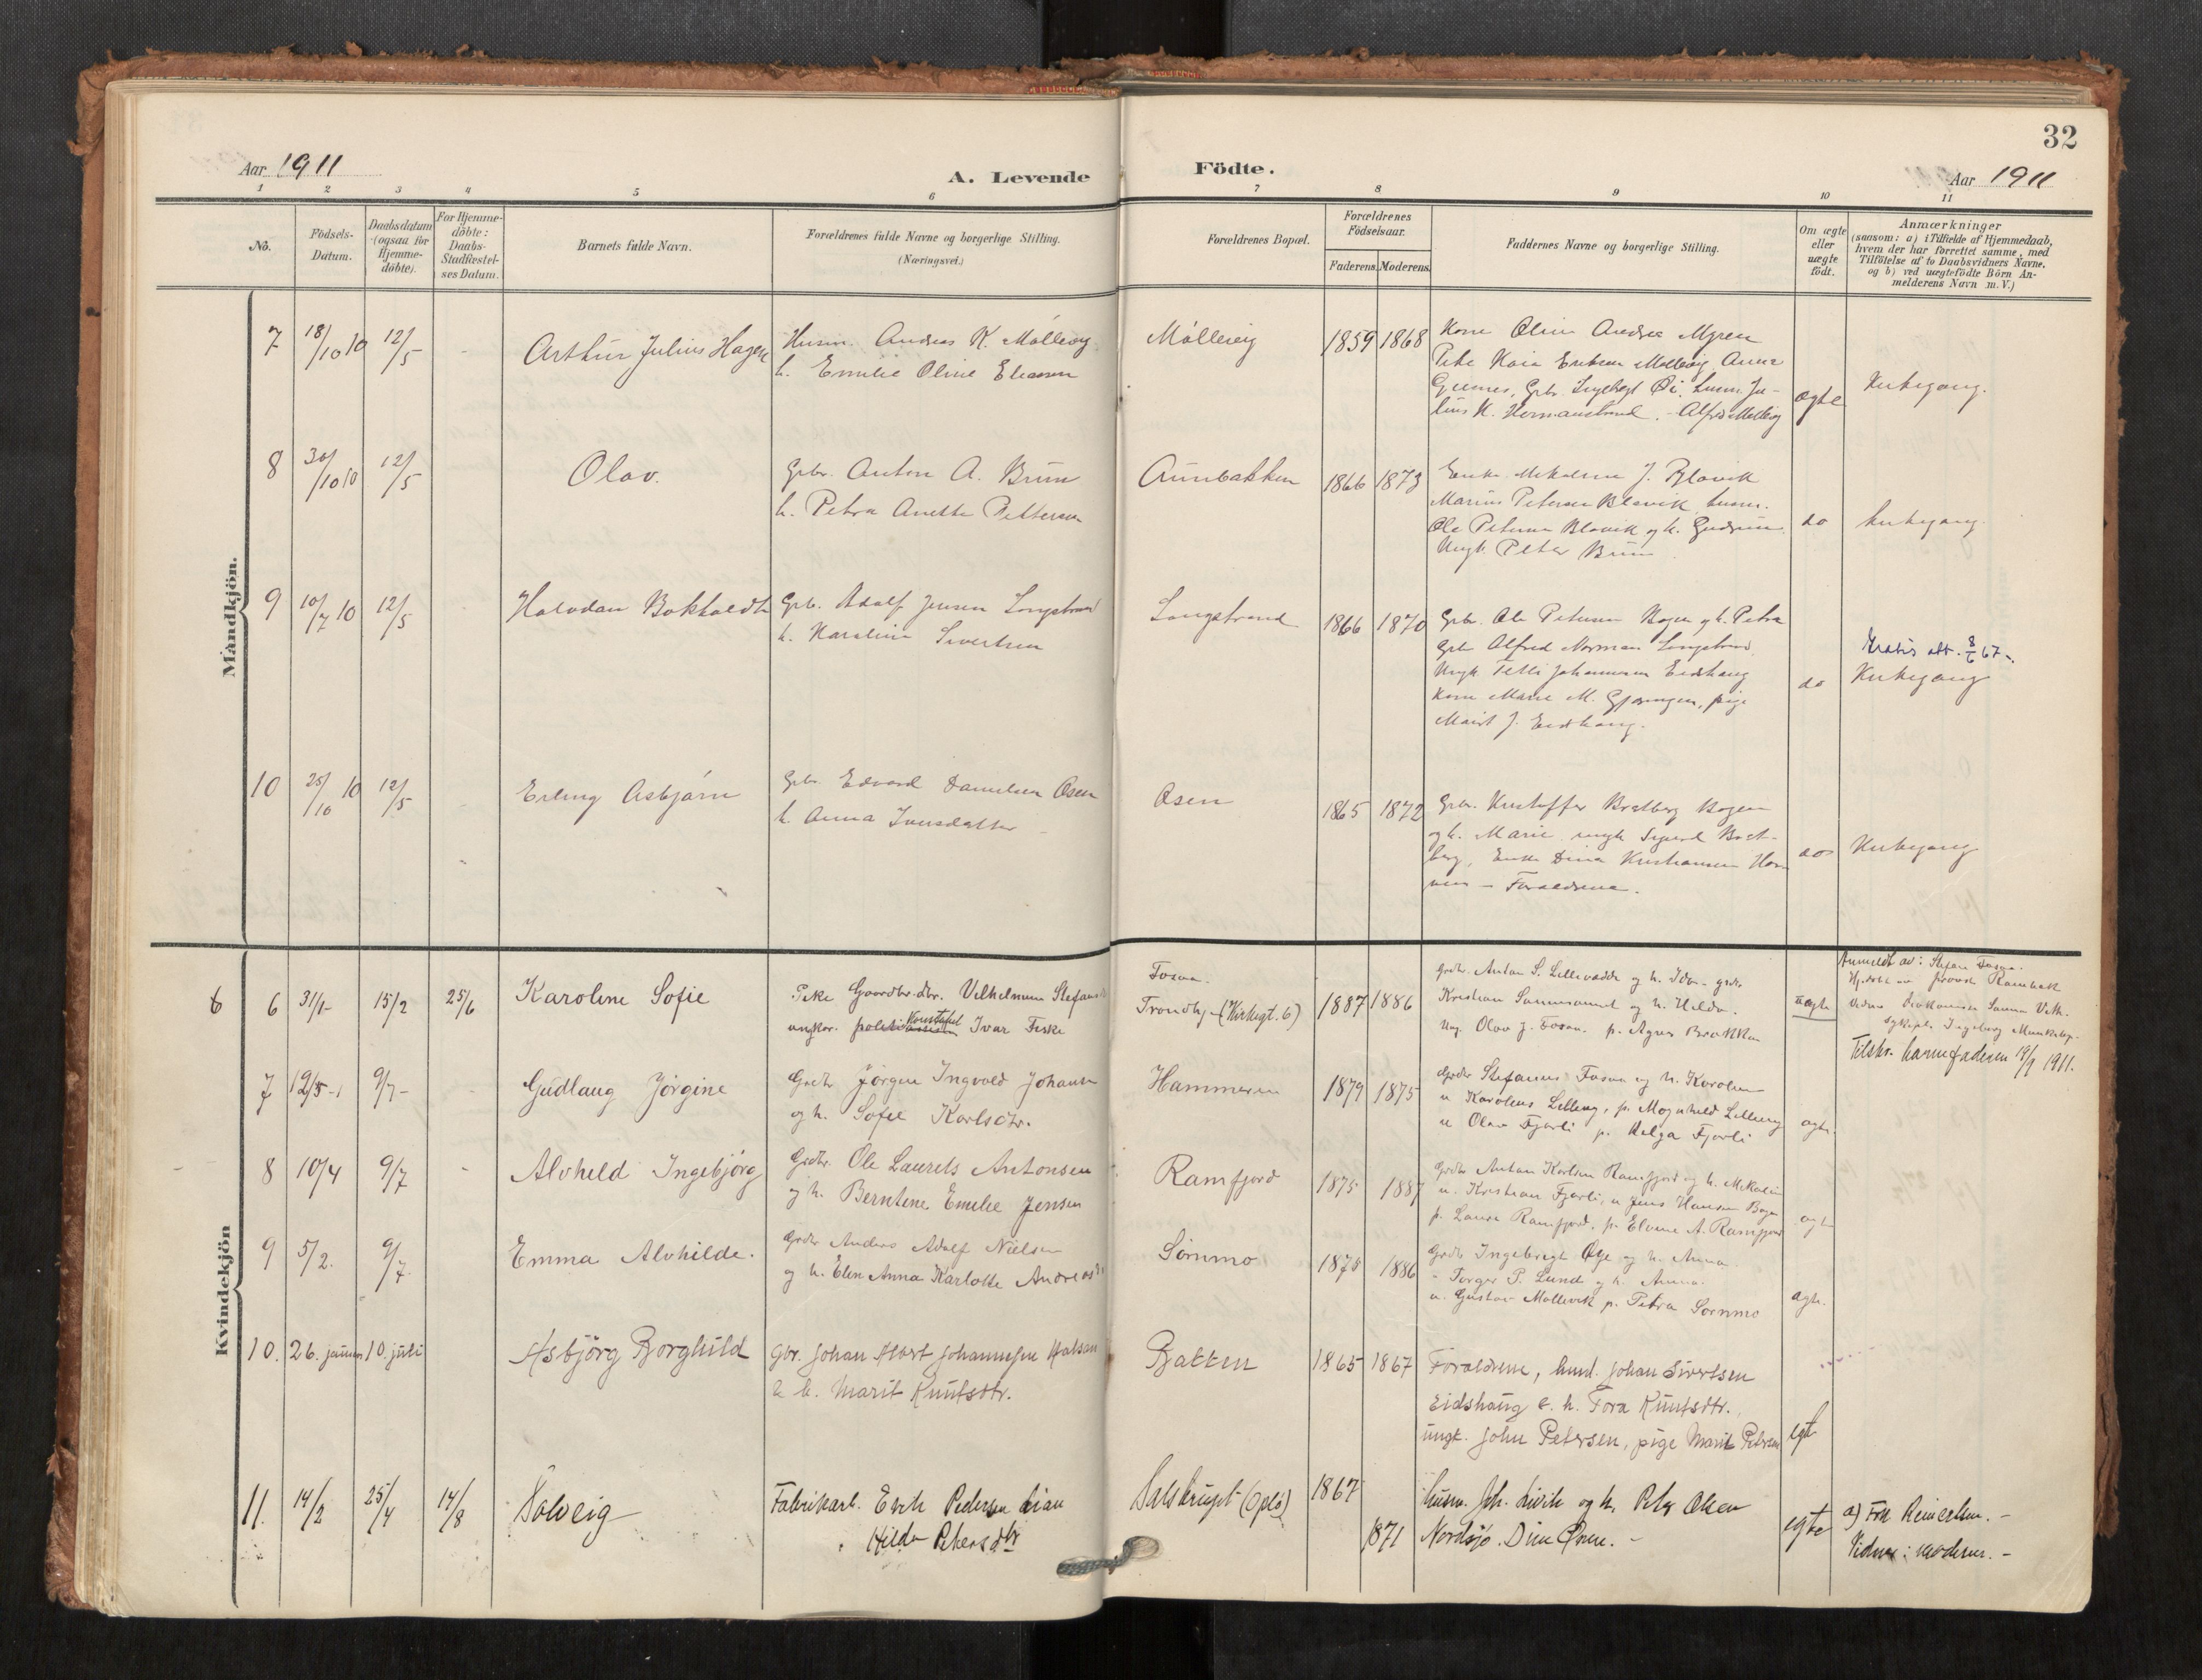 32
Aar 1911
A. Levende Födte.
Aar 1911
1 2 3 4 5 6 7 8 9 10 11
No.
Födsels-
Datum.
Daabsdatum
(ogsaa for
Hjemme-
döbte).
For Hjemme-
döbte:
Daabs-
Stadfæstel-
ses Datum.
Barnets fulde Navn.
Forældrenes fulde Navne og borgerlige Stilling.
(Næringsvei.)
Forældrenes Bopæl.
Forældrenes
Födselsaar.
Faderens. Moderens.
Faddernes Navne og borgerlige Stilling.
Om ægte
eller
uægte
födt.
Anmærkninger
(saasom: a) i Tilfælde af Hjemmedaab,
hvem der har forrettet samme, med
Tilföielse af to Daabsvidners Navne,
og b) ved uægtefödte Börn An-
melderens Navn m.V.)
Mandkjön.
7 18/10 10 12/5 - Arthur Julius Hagen
Husm. Andreas K. Møllevig
h. Emilie Oline Eliassen
Møllevig 1859 1868
Kone Oline Andrea Myren
Pike Kaia Eriksen Møllevig Anna
Julius K. Hermanstrand. - Alfred Møllevig
ægte
Kirkegang.
8 30/10 10 12/5 Olav.
Grbr. Anton A. Brun
h. Petra Anette Pettersen
Aunbakken 1866 1873
Enke Mikaline J. Blavik
Marius Petersen Blavik, husm.
Ole Petersen Blavik og h. Gudrun
Ungk. Peter Brun
do
Kirkegang
9 10/7 10 12/5 Halvdan Bokholdt
Grb. Adolf Jensen Longstrand
h. Karoline Sivertsen
Longstrand 1866 1870
Grb. Ole Petersen Hagen og h. Petra
Grb. Alfred Norman Longstrand
Ungk. Johannesen Eidshaug
Kone Marie M. pige
Marit J. Eidshaug.
do
Gratis att. 8/6 67.
Kirkegang
10 25/10 10 12/5 Erling Asbjørn
Grb. Edvard Danielsen Osen
h. Anna Iversdatter
Osen 1865 1872
Grb. Kristoffer Bratberg Hagen
og h. Marie ungk Sigurd Brat-
berg, Enke Dina Kristiansen
- Forældrene.
do
Kirkegang
Kvindekjön
6 6 31/1- 15/2 25/6 Karoline Sofie
Pike Gaardbr.dtr. Vilhelmine Stefansdtr
ungkar. politikonstabel Ivar Fiske
Fosaa.
Trondhj. (Kirkegt. 6) 1887 1886
Grdbr. Anton S. Lillevadda og h. Ida. grdbr
Kristian Sommersund og h. Hilda.
Ung. Olav J. Fosaa. p. Agnes Brakka
uægte
Anmeldt av: Stefan Fosaa.
Hjdøbt av provst Rambæk
Tilskr. barnefaderen 19/9 1911.
7 12/5- 9/7- Gudlaug Jörgine
Grdbr. Jörgen Ingvald Johansen
og h. Sofie Karlsdtr.
Hammeren 1879 1875
Grdbr Stefanus Fosaa og h. Karoline
u Karolius Lilleng, p. Magnhild Lilleng
u Olav Fjærli p. Helga Fjærli
ægte.
8 10/4 9/7 - Alvhild Ingebjörg
Grdbr. Ole Laurits Antonsen
og h. Berntine Emilie Jensen
Ramfjord 1875 1887
Grdbr Anton Karlsen Ramfjord og h. Mikaline
u. Kristian Fjærli, u Jens Hansen Bogen
p. Laura Ramfjord. p. Elvine A. Ramfjord
ægte
9 5/2. 9/7 Emma Alvhilde.
Grdbr Anders Adolf Nielsen
og h. Elen Anna Karlotte Andreasdtr
Sörnmo 1875 1886
Grdb. Ingebrigt Øye og h. Anna.
- Torger P. Lund og h. Anna.
u. Gustav Møllevik p. Petra Sörnmo
ægte.
10. 26. januar 10. juli Asbjörg Borghild
Gbr. Johan Albert Johannessen Hatsan
& h. Marit Knutsdtr.
Bakken 1865 1867
Foraldrene, husm. Johan Sivertsen
Eidshaug & h. Tora Knutsdtr.
ungk. John Petersen, pige Marit Petersen
egte
11. 14/2 25/4 14/8 Solveig
Fabrikarb. Erik Pedersen Lian
" Hilda Petersdtr
Salsbruget (Opló) 1867
1871
Husm. Joh. Livik og h. Peter Olsen
Nordsjø. Dina Ønen. -
egte
a) Frk Reinertsen. -
Vidner: moderen. -